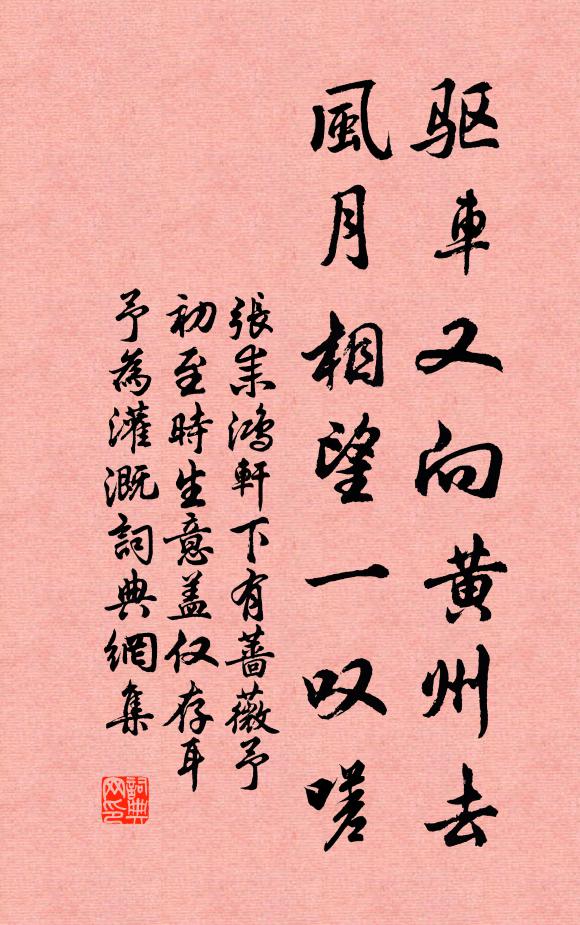 驱車又向黄州去
風月相望一叹嗟
張耒鴻軒下有薔薇予
初至時生意盖仅存耳
予為灌溉詞典網集
詞典網印